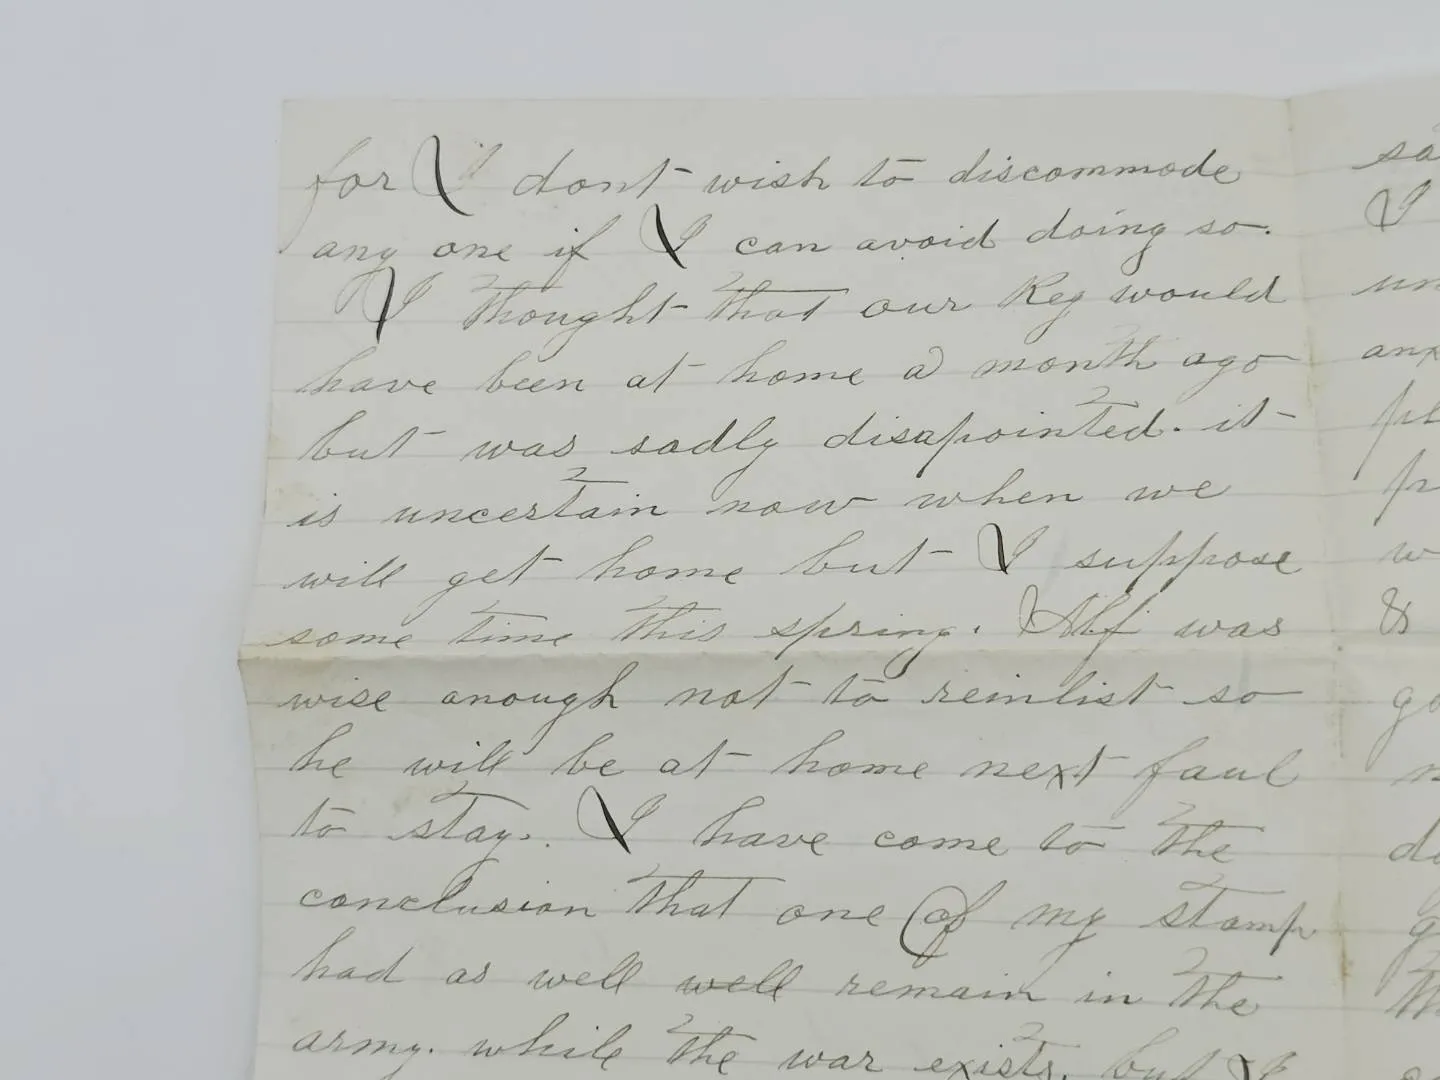 for I dont wish to discommode
any one if I can avoid doing so.
I thought that our Reg would
have been at home a month ago
but was sadly disapointed. it
is uncertain now when we
will get home but I suppose
some time this spring. Alf was
wise anough not to reinlist so
he will be at home next faul
to stay. I have come to the
conclusion that one of my stamp
had as well well remain in the
army. while the war exists, but I
I
&